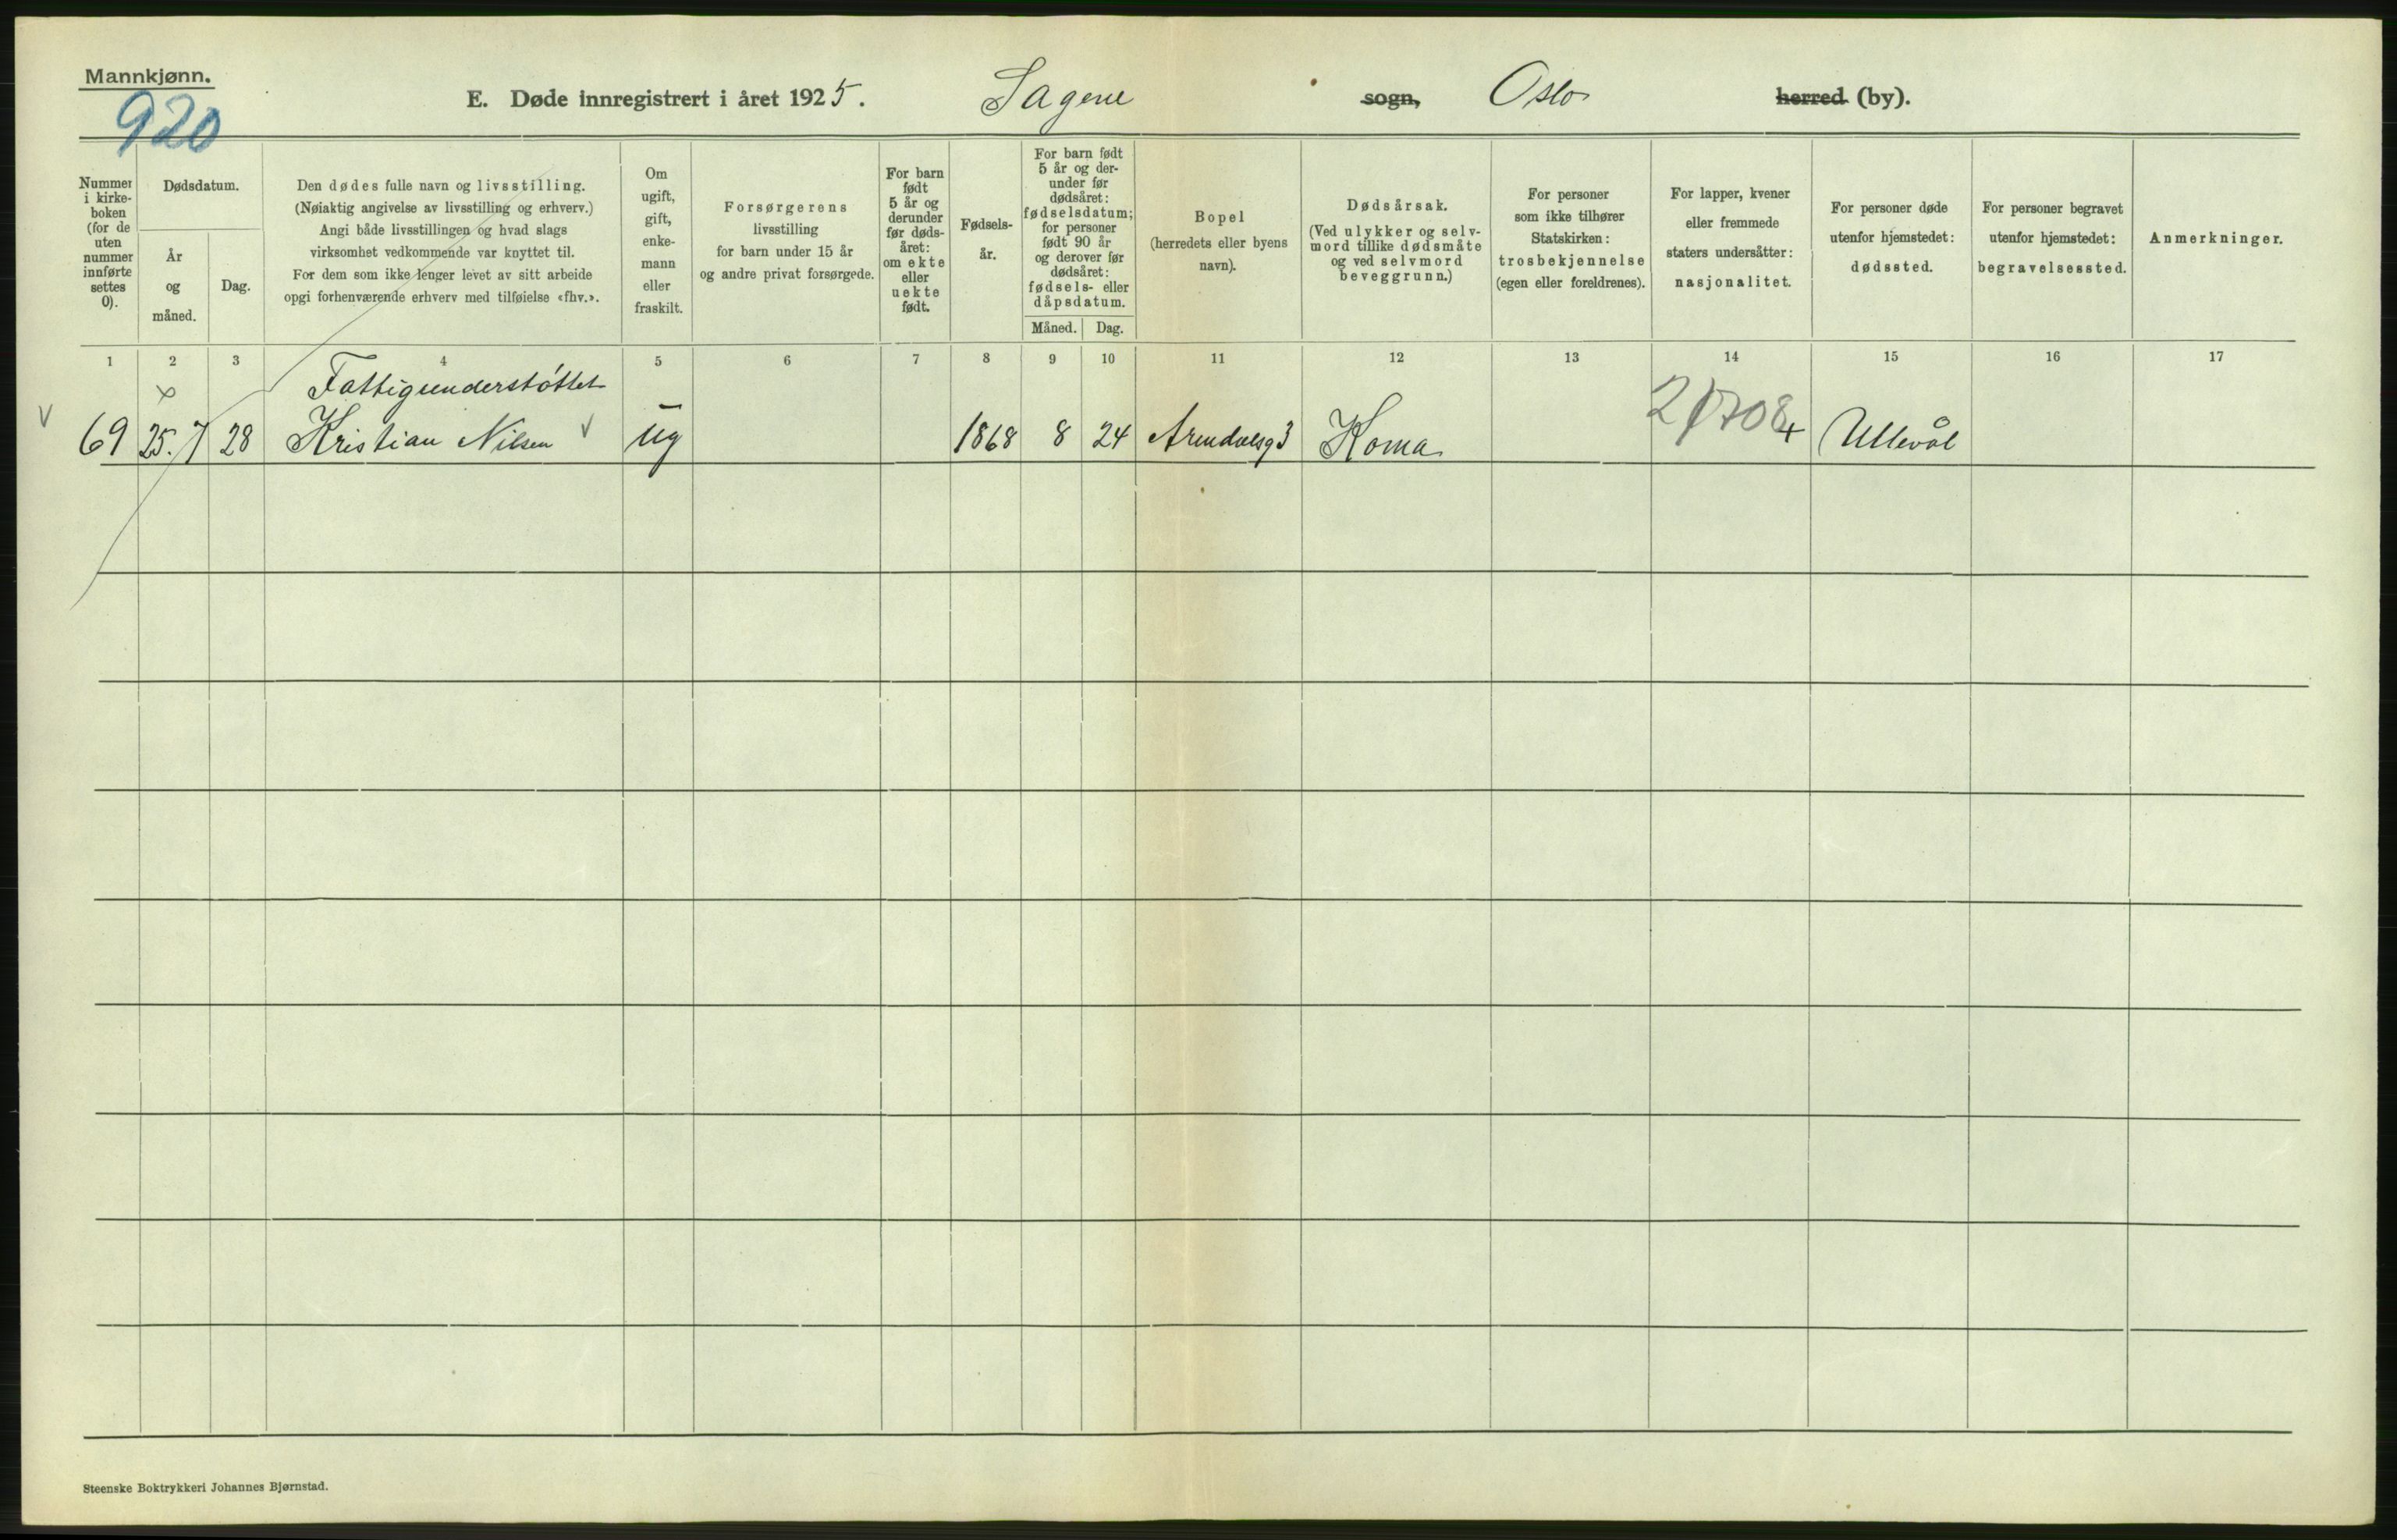 Mannkjønn.
920
E. Døde innregistrert i året 1925. Sagene sogn, Oslo herred (by).
Nummer
i kirke-
boken
(for de
uten
nummer
innførte
settes
0).
Dødsdatum.
År
og
måned.
Dag.
Den dødes fulle navn og livsstilling.
(Nøiaktig angivelse av livsstilling og erhverv.)
Angi både livsstillingen og hvad slags
virksomhet vedkommende var knyttet til.
For dem som ikke lenger levet av sitt arbeide
opgi forhenværende erhverv med tilføielse «fhv.».
Om
ugift,
gift,
enke-
mann
eller
fraskilt.
Forsørgerens
livsstilling
for barn under 15 år
og andre privat forsørgede.
For barn
født
5 år og
derunder
før døds-
året:
om ekte
eller
uekte
født.
Fødsels-
år.
For barn født
5 år og der-
under før
dødsåret:
fødselsdatum;
for personer
født 90 år
og derover før
dødsåret:
fødsels- eller
dåpsdatum.
Måned. Dag.
Bopel
(herredets eller byens
navn).
Dødsårsak.
(Ved ulykker og selv-
mord tillike dødsmåte
og ved selvmord
beveggrunn.)
For personer
som ikke tilhører
Statskirken:
trosbekjennelse
(egen eller foreldrenes).
For lapper, kvener
eller fremmede
staters undersåtter:
nasjonalitet.
For personer døde
utenfor hjemstedet:
dødssted.
For personer begravet
utenfor hjemstedet:
begravelsessted.
Anmerkninger.
1 2 3 4 5 6 7 8 9 10 11 12 13 14 15 16 17
Fattigunderstøttet
69 25. 7 28 Kristian Nilsen ug 1868 8 24 Arendalsg 3 Koma Ullevål
Steenske Boktrykkeri Johannes Bjørnstad.